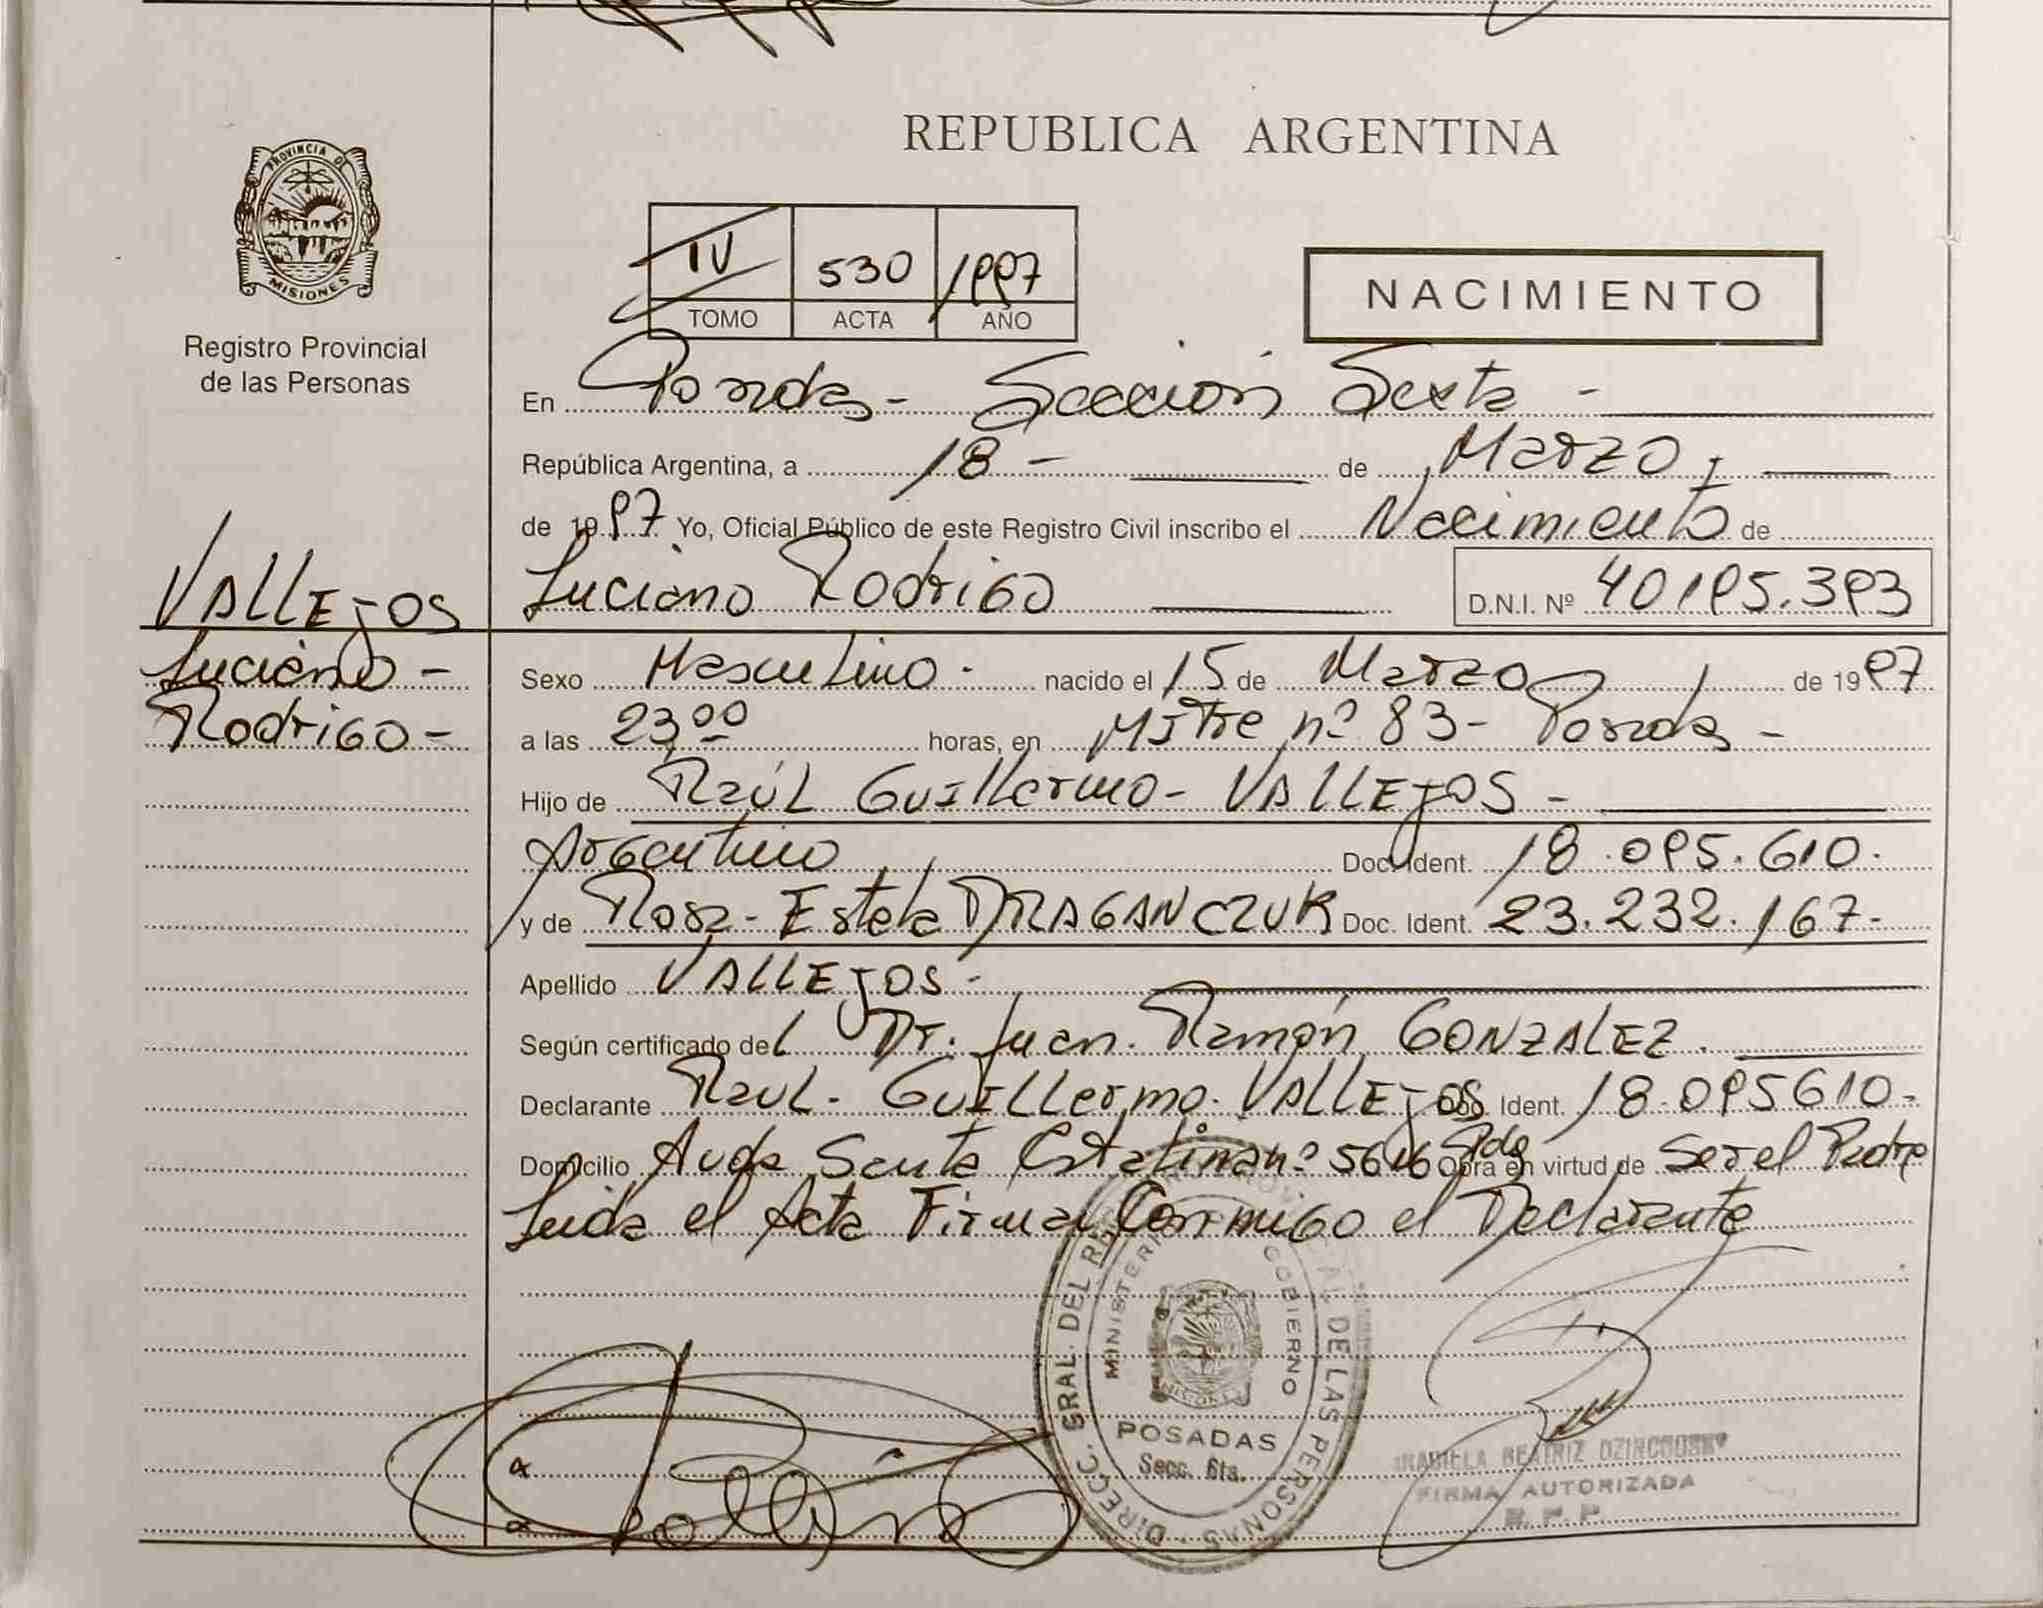 REPUBLICA ARGENTINA
PROVINCIA DE
MISIONES
Registro Provincial
de las Personas
IV 530 1997
TOMO ACTA AÑO
NACIMIENTO
En Posadas - Sección Sexta -
República Argentina, a 18 - de Marzo -
de 1997 Yo, Oficial Público de este Registro Civil inscribo el Nacimiento de
VALLEJOS
Luciano -
Rodrigo -
Luciano Rodrigo D.N.I. Nº 40195.393
Sexo Masculino - nacido el 15 de Marzo de 1997
a las 23,00 horas, en Mitre nº 83 - Posadas -
Hijo de Raúl Guillermo - VALLEJOS -
Argentino Doc. Ident. 18.095.610.
y de Rosa - Estela DRAGANCZUK Doc. Ident. 23.232.167 -
Apellido VALLEJOS -
Según certificado del Dr. Juan Ramón GONZALEZ.
Declarante Raúl - Guillermo VALLEJOS Doc. Ident. 18.095610 -
Domicilio Avda Santa Catalina nº 5616 Pdas Obra en virtud de Ser el Padre
Leida el Acta Firma Conmigo el Declarante
DIRECC. GRAL. DEL DE LAS PERSONAS
MINISTERIO GOBIERNO
POSADAS
Secc. 6ta.
BEATRIZ
FIRMA AUTORIZADA